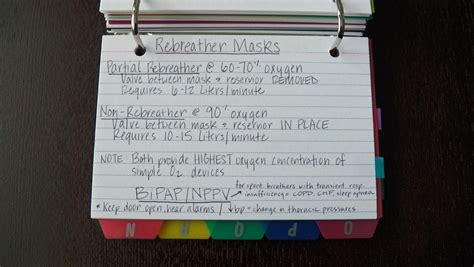 Rebreather Masks
Partial Rebreather @ 60-70% oxygen
Valve between mask + reservior REMOVED
Requires 6-12 Liters/minute
Non-Rebreather @ 90% oxygen
Valve between mask + reservior IN PLACE
Requires 10-15 Liters/minute
NOTE Both provide HIGHEST oxygen concentration of
simple O₂ devices
BiPAP/NPPV → for spont. breathers with transient resp.
insufficiency = COPD, CHF, sleep apnea
* Keep door open, hear alarms / ↓ bp = change in thoracic pressures
N R O P